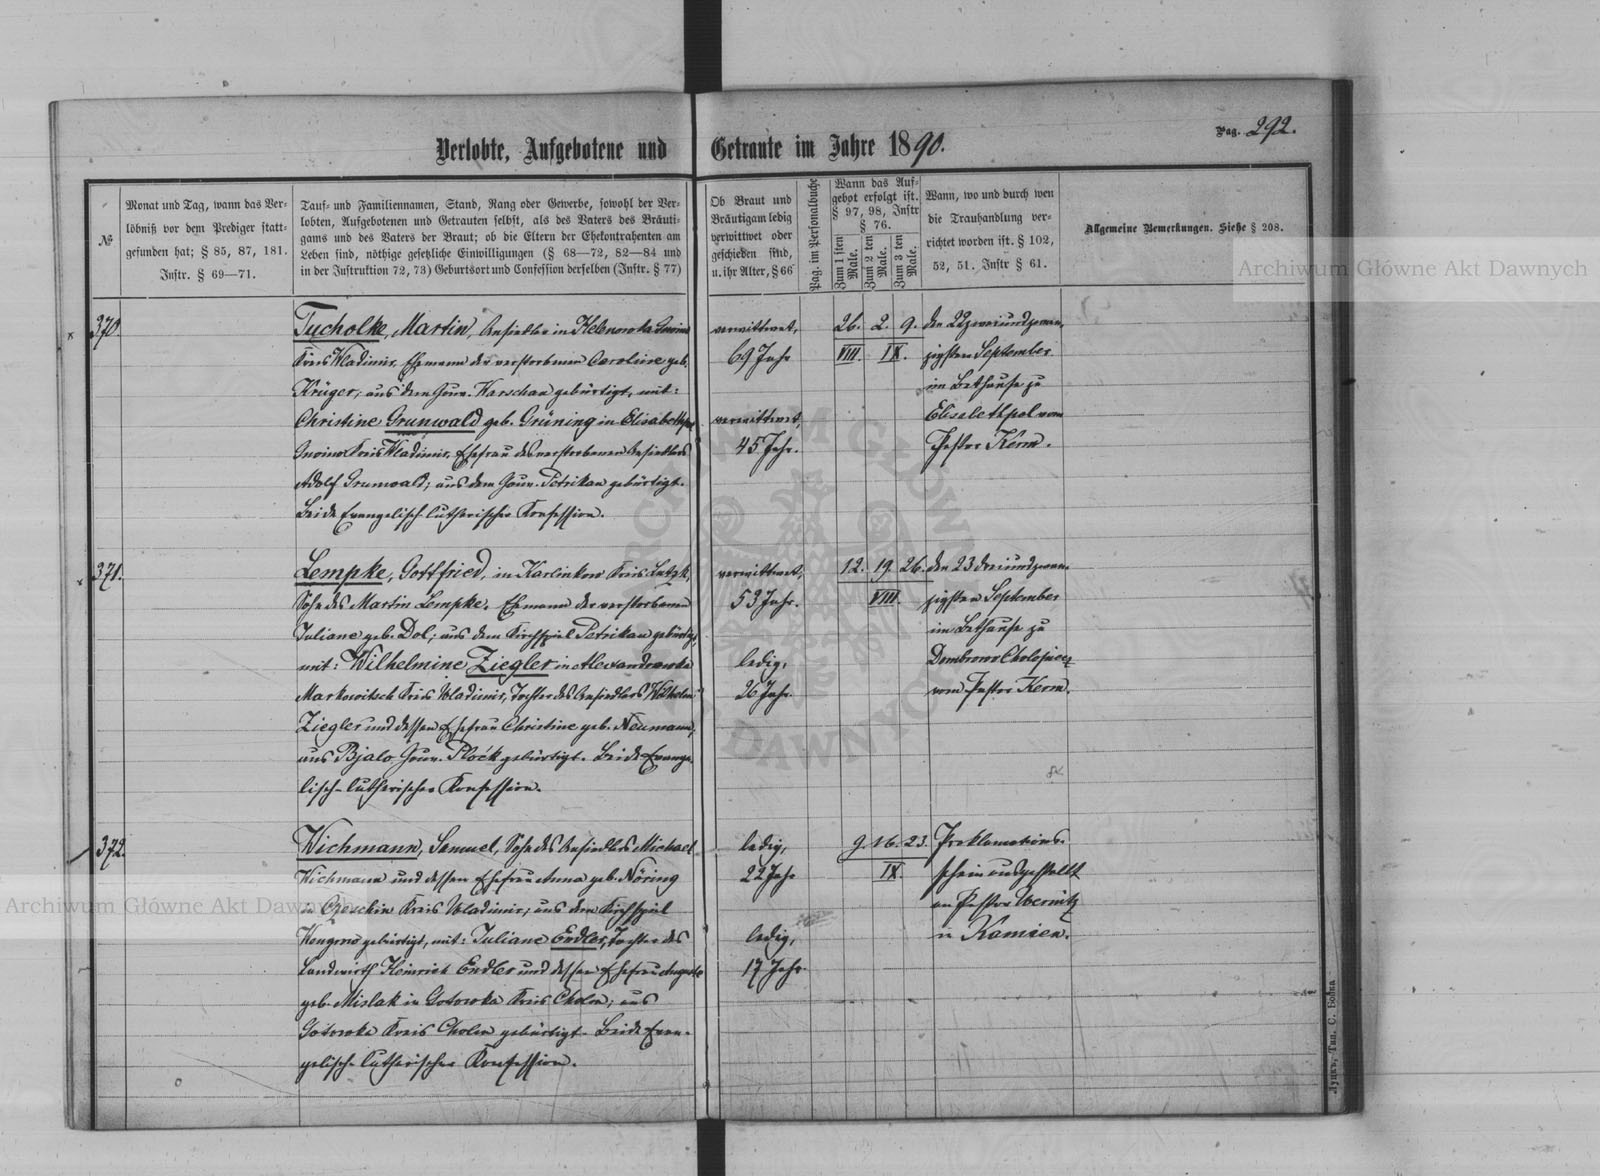 Verlobte, Aufgebotene und Getraute im Jahre 1890.
Pag. 292.
№
Monat und Tag, wann das Ver-
löbniß vor dem Prediger statt-
gefunden hat; § 85, 87, 181.
Instr. § 69—71.
Tauf- und Familiennamen, Stand, Rang oder Gewerbe, sowohl der Ver-
lobten, Aufgebotenen und Getrauten selbst, als des Vaters des Bräuti-
gams und des Vaters der Braut; ob die Eltern der Ehekontrahenten am
Leben sind, nöthige gesetzliche Einwilligungen (§ 68—72, 82—84 und
in der Instruktion 72, 73) Geburtsort und Confession derselben (Instr. § 77)
Ob Braut und
Bräutigam ledig
verwittwet oder
geschieden sind,
u. ihr Alter, § 66
Pag. im Personalbuche
Wann das Auf-
gebot erfolgt ist.
§ 97, 98, Instr
§ 76.
Zum 1 sten
Male.
Zum 2 ten
Male.
Zum 3 ten
Male.
Wann, wo und durch wen
die Trauhandlung ver-
richtet worden ist. § 102,
52, 51. Instr § 61.
Allgemeine Bemerkungen. Siehe § 208.
370.
Tucholke, Martin, Ansiedler in Helenowka
Kreis Wladimir, Ehemann der verstorbenen Caroline geb.
Krüger; aus dem Gouv. Warschau gebürtigt, mit:
Christine Grunwald geb. Grüning in Elisabethpol
Kreis Wladimir, Ehefrau des verstorbenen Ansiedlers
Adolf Grunwald; aus dem Gouv. Petrikau gebürtigt.
Beide Evangelisch-lutherischer Konfession.
verwittwet,
69 Jahr
verwittwet,
45 Jahr.
26. 2. 9.
VIII. IX.
den 22 zweiundzwan-
zigsten September
im Bethause zu
Elisabethpol vom
Pastor Kerm.
371.
Lempke, Gottfried, in Karlinkow Kreis Lutzk,
Sohn des Martin Lempke, Ehemann der verstorbenen
Juliane geb. Dol; aus dem Kirchspiel Petrikau gebürtigt,
mit: Wilhelmine Ziegler in Alexandrowka
Markowitsch Kreis Wladimir, Tochter des Ansiedlers Wilhelm
Ziegler und dessen Ehefrau Christine geb. Neumann,
aus Bjalo Gouv. Płock gebürtigt. Beide Evange-
lisch-lutherischer Konfession.
verwittwet,
53 Jahr.
ledig,
26 Jahr.
12. 19. 26.
VIII.
den 23 dreiundzwan-
zigsten September
im Bethause zu
Dombrowo
vom Pastor Kerm.
372.
Wichmann, Samuel, Sohn des Ansiedlers Michael
Wichmann und dessen Ehefrau Anna geb. Nöring
in Kreis Wladimir; aus dem Kirchspiel
Wengrow gebürtigt, mit: Juliane Endler, Tochter des
Landwirth Heinrich Endler und dessen Ehefrau Auguste
geb. Mislak in Gotowka Kreis Cholm; aus
Gotowka Kreis Cholm gebürtigt. Beide Evan-
gelisch-lutherischer Konfession.
ledig,
22 Jahr
ledig,
17 Jahr.
9. 16. 23.
IX.
Proklamations-
schein ausgestellt
an Pastor Wernitz
in Kamien.
Луцкъ, Тип. С. Бойка
Archiwum Główne Akt Dawnych
Archiwum Główne Akt Dawnych